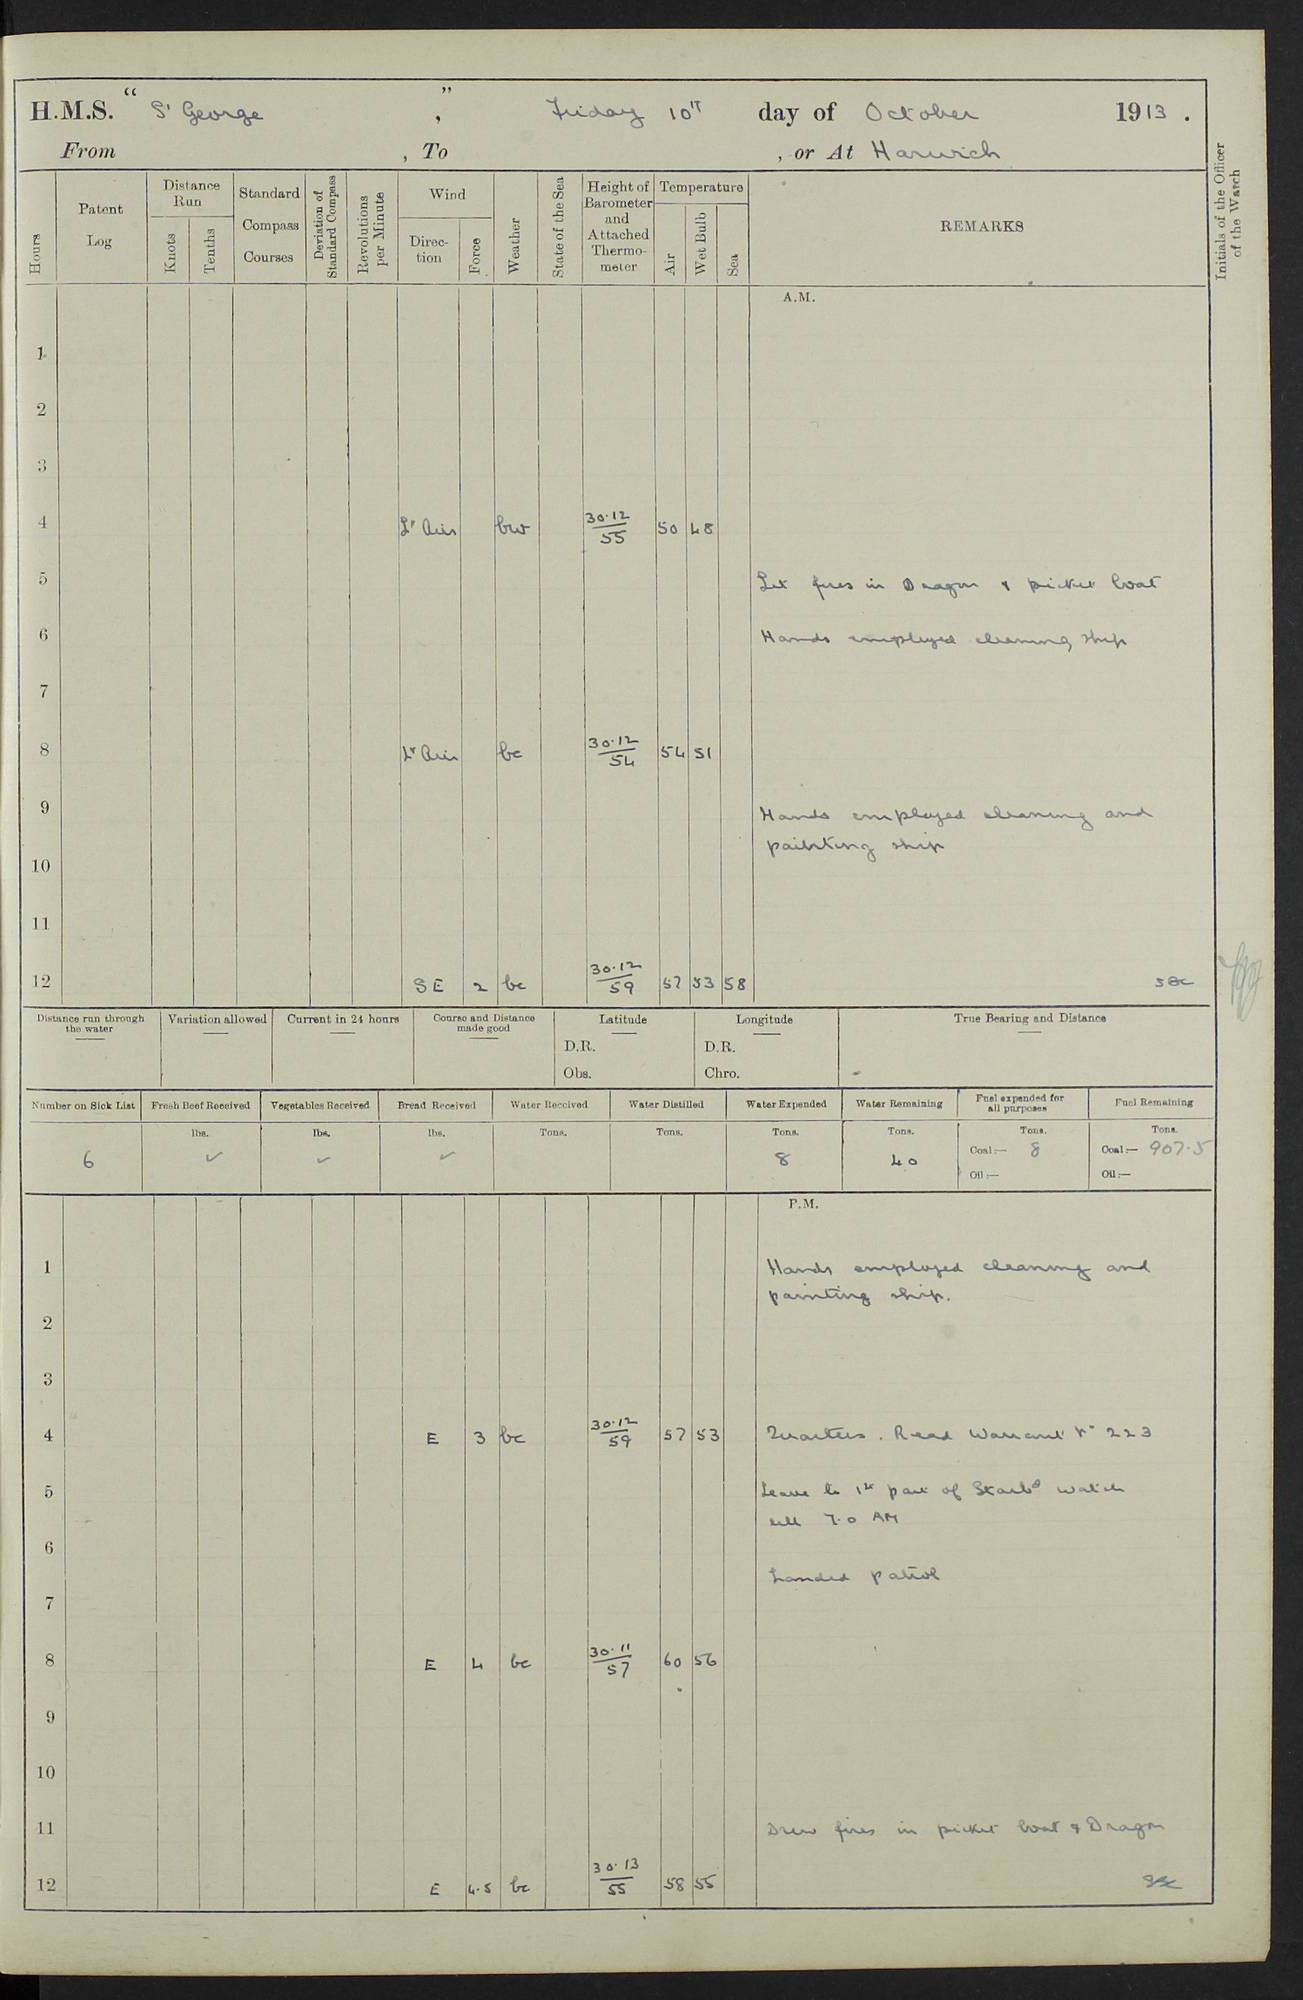 H.M.S. "St George", Friday 10th day of October 1913.
From , To , or At Harwich
Initials of the Officer of the Watch
Hours
Patent Log
Distance Run
Knots
Tenths
Standard Compass Courses
Deviation of Standard Compass
Revolutions per Minute
Wind
Direc-tion
Force
Weather
State of the Sea
Height of Barometer and Attached Thermo-meter
Temperature
Air
Wet Bulb
Sea
REMARKS
A.M.
1
2
3
4 Lt Airs bw 30.12/55 50 48
5 Let fires in Dragon & picket boat
6 Hands employed cleaning ship
7
8 Lt Airs bc 30.12/54 54 51
9 Hands employed cleaning and
painting ship
10
11
12 SE 2 bc 30.12/59 57 53 58
Distance run through the water
Variation allowed
Current in 24 hours
Course and Distance made good
Latitude
D.R.
Obs.
Longitude
D.R.
Chro.
True Bearing and Distance
Number on Sick List
Fresh Beef Received
Vegetables Received
Bread Received
Water Received
Water Distilled
Water Expended
Water Remaining
Fuel expended for all purposes
Fuel Remaining
lbs. lbs. lbs. Tons. Tons. Tons. Tons. Tons. Tons.
6 ✓ ✓ ✓ 8 40 Coal:— 8 Coal:— 907.5
Oil:— Oil:—
P.M.
1 Hands employed cleaning and
painting ship.
2
3
4 E 3 bc 30.12/59 57 53 Quarters. Read Warrant No 223
5 Leave to 1st part of Starbd watch
till 7.0 AM
6
Landed patrol
7
8 E 4 bc 30.11/57 60 56
9
10
11 Drew fires in picket boat & Dragon
12 E 4.5 bc 30.13/55 58 55